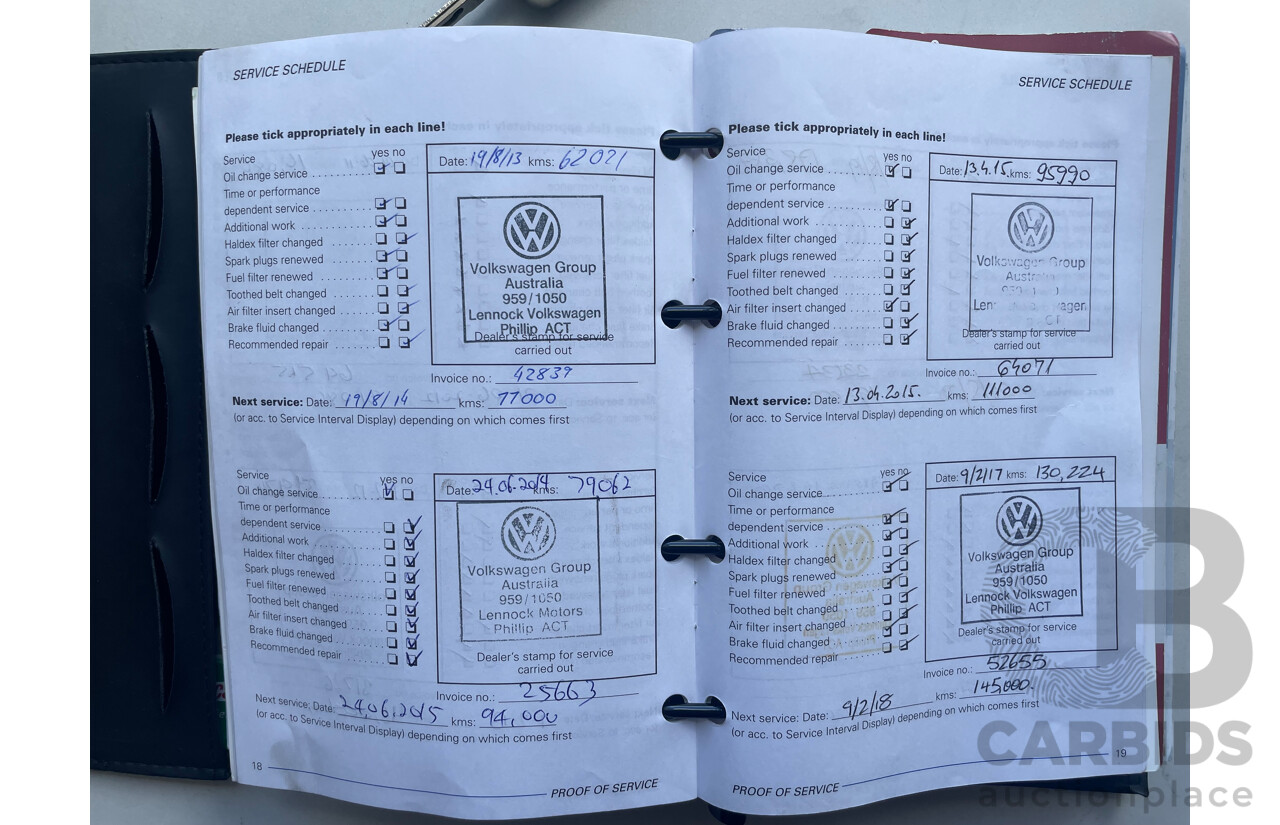 SERVICE SCHEDULE
Please tick appropriately in each line!
Service yes no
Oil change service
Time or performance
dependent service
Additional work
Haldex filter changed
Spark plugs renewed
Fuel filter renewed
Toothed belt changed
Air filter insert changed
Brake fluid changed
Recommended repair
Date: 19/8/13 kms: 62021
Volkswagen Group
Australia
959/1050
Lennock Volkswagen
Phillip ACT
Dealer's stamp for service
carried out
Invoice no.: 42839
Next service: Date: 19/8/14 kms: 77000
(or acc. to Service Interval Display) depending on which comes first
Service yes no
Oil change service
Time or performance
dependent service
Additional work
Haldex filter changed
Spark plugs renewed
Fuel filter renewed
Toothed belt changed
Air filter insert changed
Brake fluid changed
Recommended repair
Date: 24.06.2014 kms: 79062
Volkswagen Group
Australia
959/1050
Lennock Motors
Phillip ACT
Dealer's stamp for service
carried out
Invoice no.: 25663
Next service: Date: 24.06.2015 kms: 94,000
(or acc. to Service Interval Display) depending on which comes first
18
PROOF OF SERVICE
SERVICE SCHEDULE
Please tick appropriately in each line!
Service yes no
Oil change service
Time or performance
dependent service
Additional work
Haldex filter changed
Spark plugs renewed
Fuel filter renewed
Toothed belt changed
Air filter insert changed
Brake fluid changed
Recommended repair
Date: 13.4.15. kms: 95990
Volkswagen Group
Australia
Dealer's stamp for service
carried out
Invoice no.: 64071
Next service: Date: 13.04.2015. kms: 111000
(or acc. to Service Interval Display) depending on which comes first
Service yes no
Oil change service
Time or performance
dependent service
Additional work
Haldex filter changed
Spark plugs renewed
Fuel filter renewed
Toothed belt changed
Air filter insert changed
Brake fluid changed
Recommended repair
Date: 9/2/17 kms: 130,224
Volkswagen Group
Australia
959/1050
Lennock Volkswagen
Phillip ACT
Dealer's stamp for service
carried out
Invoice no.: 52655
Next service: Date: 9/2/18 kms: 145,000.
(or acc. to Service Interval Display) depending on which comes first
PROOF OF SERVICE
19
CARBIDS
auctionplace